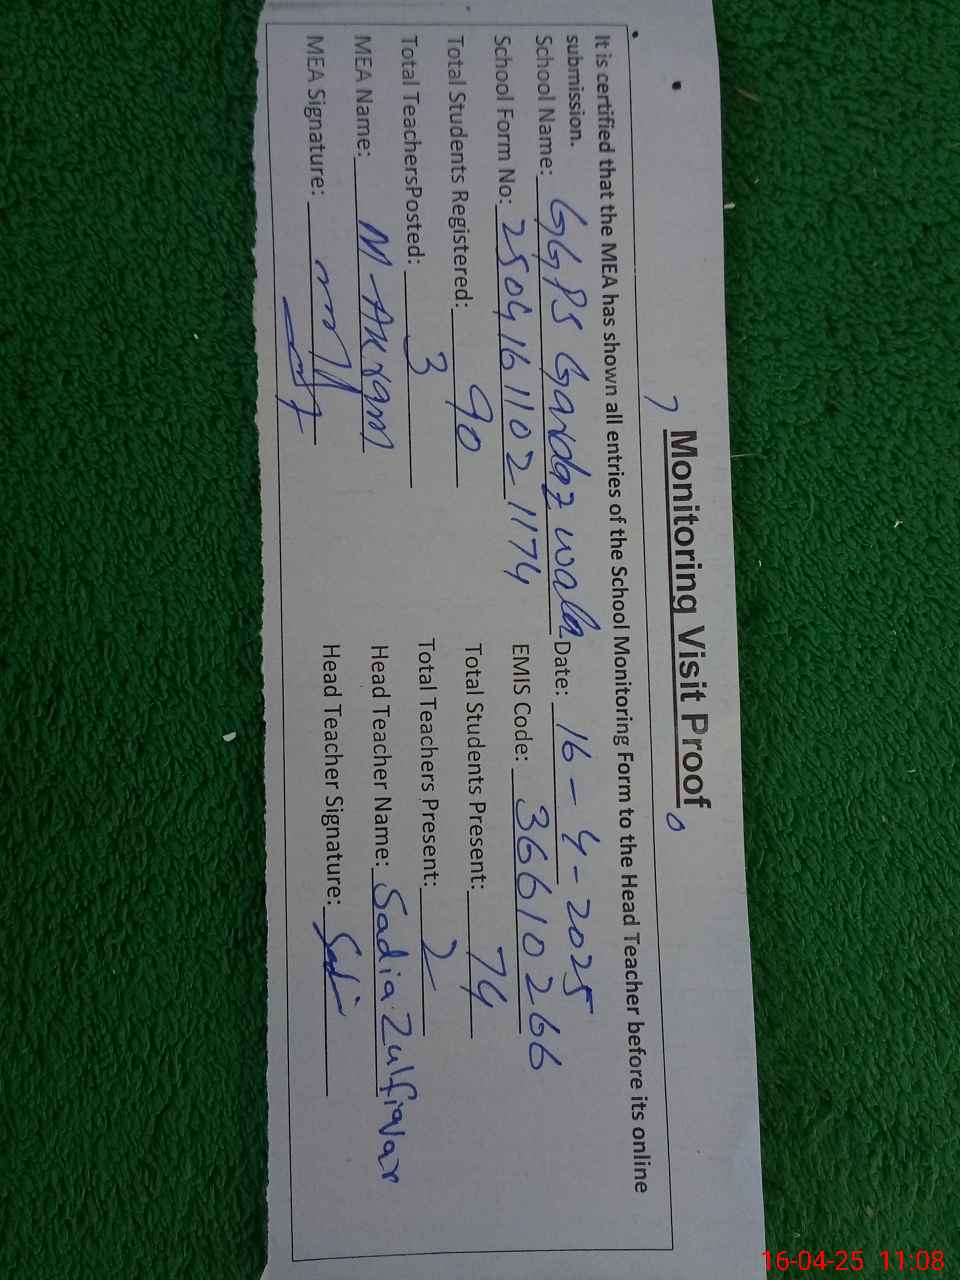 Monitoring Visit Proof
It is certified that the MEA has shown all entries of the School Monitoring Form to the Head Teacher before its online
submission.
School Name: GGPS Gandaz wala Date: 16-4-2025
School Form No: 2504161102 1174 EMIS Code: 36610266
Total Students Registered: 90 Total Students Present: 74
Total TeachersPosted: 3 Total Teachers Present: 2
MEA Name: M-Akram Head Teacher Name: Sadia Zulfiqar
MEA Signature: Head Teacher Signature: Sadi
16-04-25 11:08